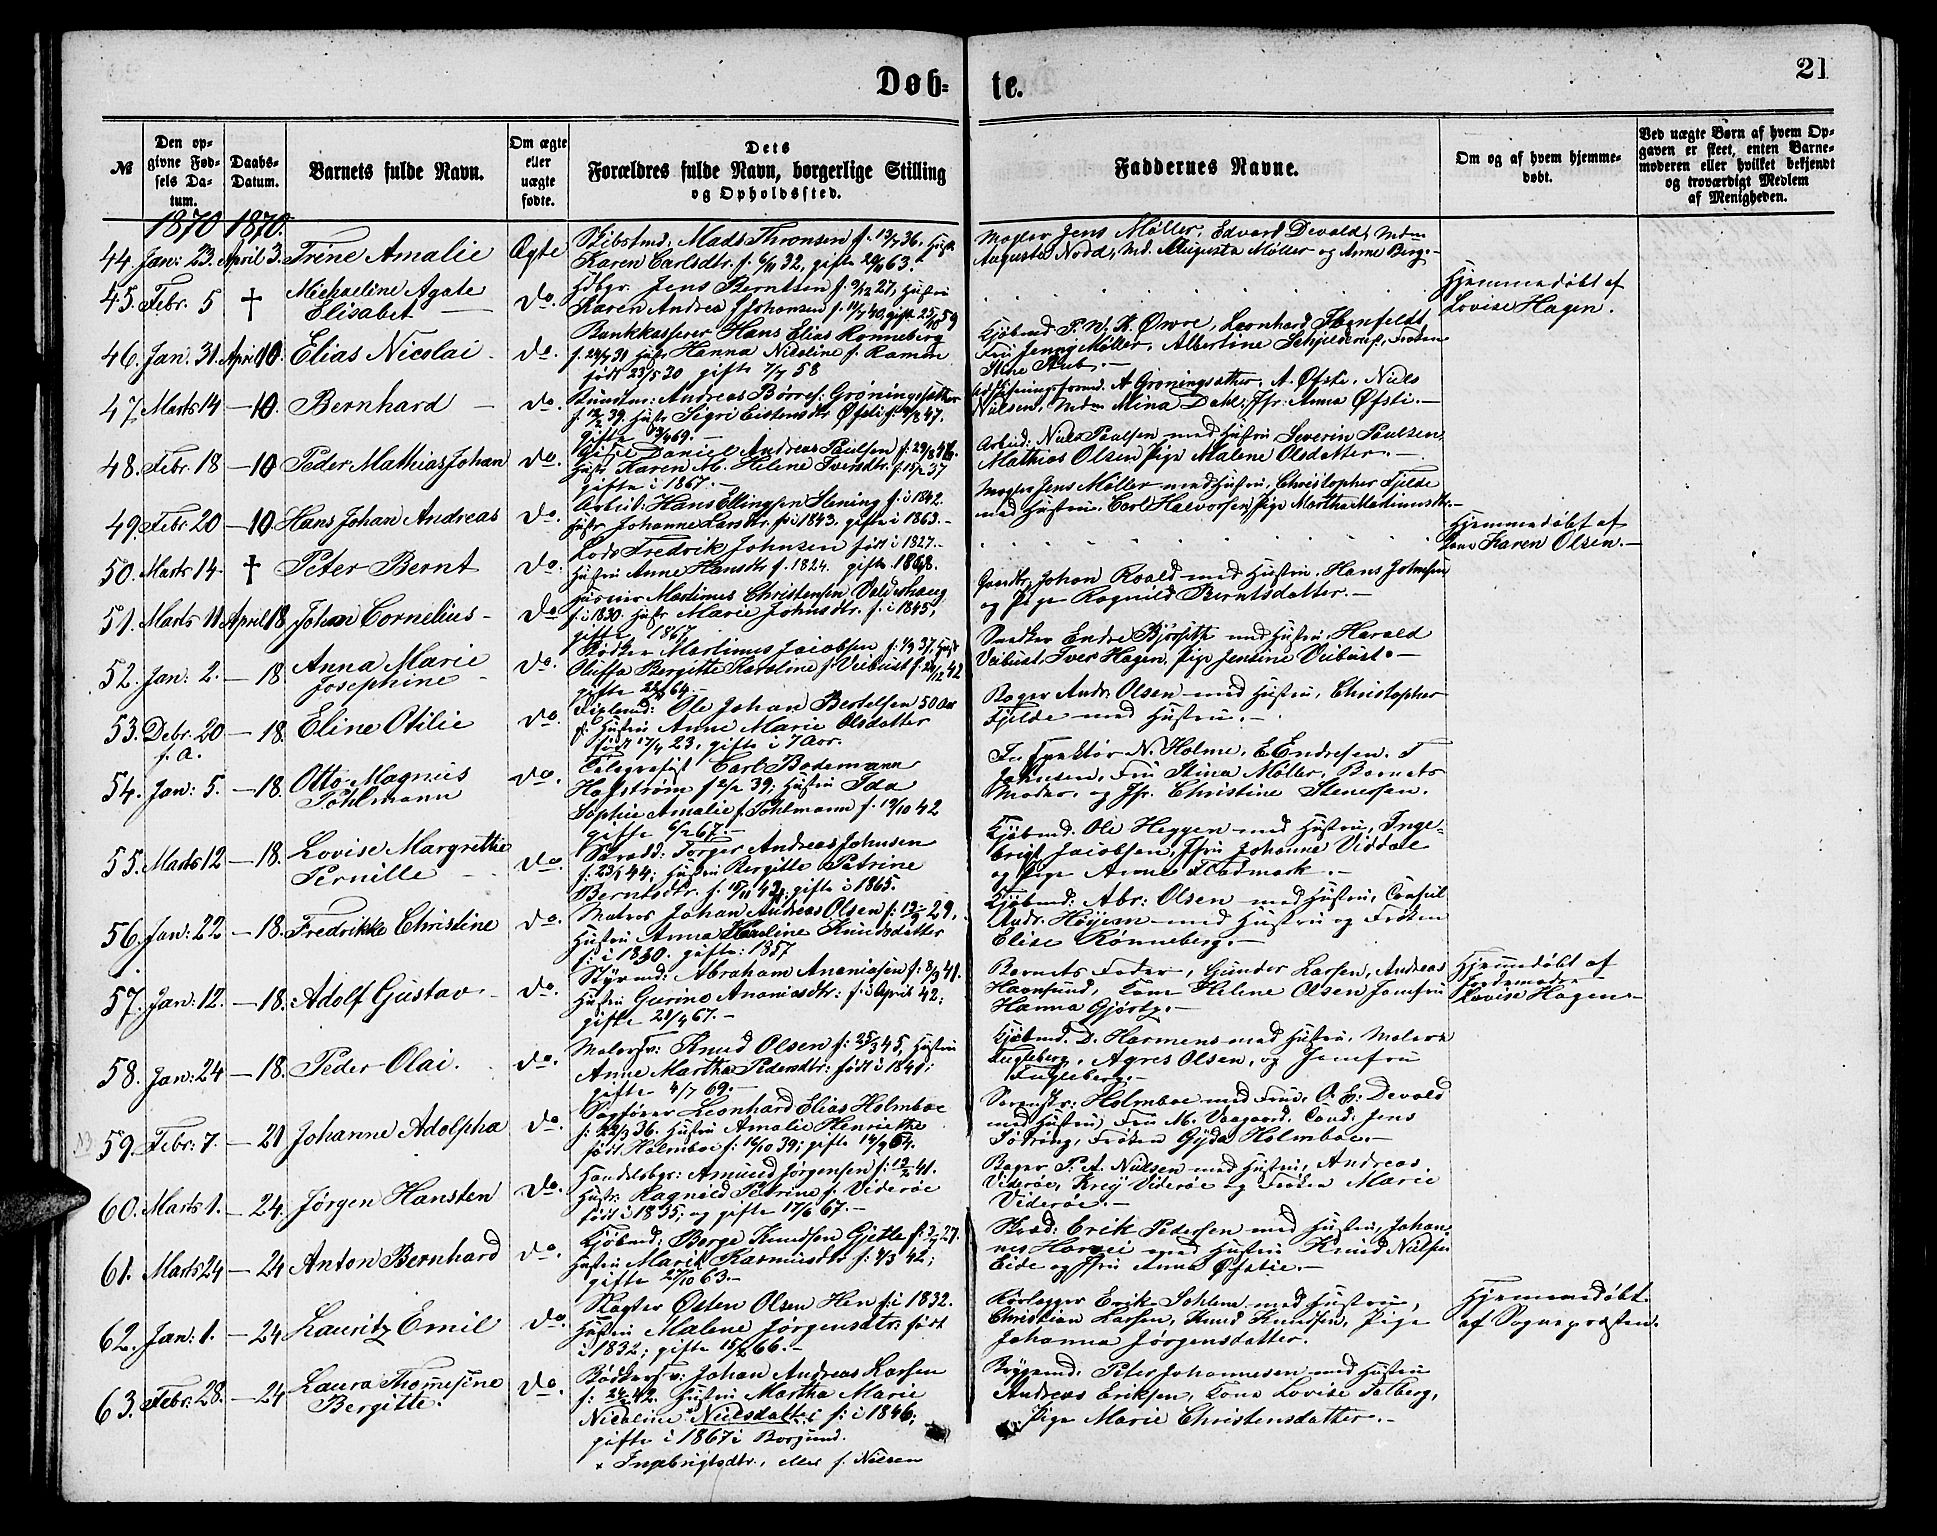 Døb-
te.
21
№
Den op-
givne Fød-
sels Da-
tum.
Daabs-
Datum.
Barnets fulde Navn.
Om ægte
eller
uægte
fødte.
Dets
Forældres fulde Navn, borgerlige Stilling
og Opholdssted.
Faddernes Navne.
Om og af hvem hjemme-
døbt.
Ved uægte Børn af hvem Op-
gaven er skeet, enten Barne-
moderen eller hvilket bekjendt
og troværdigt Medlem
af Menigheden.
1870 1870.
44 Jan: 23. April 3. Trine Amalie Ægte
Mads Thronsen f. 13/7 36. Hust
Karen Carlsdtr. f. 6/11 32, gifte 63.
Mægler Jens Møller, Edvard Devold, Mdm
Augusta Nodd, Md. Augusta Møller og Anne Berg.
45. Febr. 5 † Michaeline Agate
Elisabet do.
Hdbgr. Jens Berntsen f. 9/12 27, Hustru
Karen Andrea f Johansen f. 11/7 40, gift 25/10 59
Hjemmedøbt af
Lovise Hagen.
46. Jan. 31. April 10. Elias Nicolai do.
Bankkasserer Hans Elias Rønneberg
f. 24/7 31 Hustr Hanna Nicoline f. Ramm
født 23/5 30 gifte 7/7 58
Kjøbmd P. W. K. Øwre, Leonhard
Fru Jenny Møller, Albertine Schjelderup, Frøken
Stine Aub.
47. Marts 14 — 10. Bernhard do.
Andreas Børres: Grøningsæther
f. 39, Hustr Sigri Eistensdtr Øfsti f. 47.
gifte 69.
A Grøningsæther, A. Øfsti, Niels
Nielsen, Mdm Mina Dahl, Jfr. Anna Øfsti.
48. Febr. 18 — 10 Peder Mathias Johan do.
Daniel Andreas Paulsen f. 29/8 46.
Hustr Karen M. Helene Iversdtr. f. 37
gifte i 1867.
Arbeid: Niels Paulsen med Hustru Severin Paulsen
Mathias Olsen Pige Malene Olsdatter.
49. Febr. 20 — 10 Hans Johan Andreas do.
Arbeid: Hans Ellingsen Slening f. i 1842.
Hustr Johanne Larsdtr. f. i 1843. gifte i 1863.
Mægler Jens Møller med Hustru, Christopher Fjelde
med Hustru. Carl Halvorsen, Pige Martha Martinusdtr.
50. Marts 14. † Peter Bernt do.
Lods Fredrik Johnsen født i 1827.
Hustru Anne Hansdtr f. 1824. gifte 1868.
Hjemmedøbt af
Kone Karen Olsen.
51. Marts 11 April 18. Johan Cornelius do
Martinus Christensen Valderhaug
f. i 1830 Hustr Marie Johnsdtr. f. i 1845,
gifte 1867.
Johan Roald med Hustru, Hans Johnsen
og Pige Ragnild Berntsdatter.
52. Jan: 2. — 18 Anna Marie
Josephine do.
Bødker Martinus Jacobsen f. 1/9 37, Hust
Oluffa Bergitte Karoline f. Veibust f. 24/12 42
gifte 64.
Snedker Endre Bjørseth med Hustru, Harald
Veibust. Iver Hagen, Pige Jensine Veibust.
53. Debr. 20 — 18. Eline Otilie do.
f. a.
Ole Johan Bertelsen 50 Aar
Hustru Anne Marie Olsdatter
født 17/4 23, gifte i 7 Aar.
Bager Andr. Olsen med Hustru, Christopher
Fjelde med Hustru.
54. Jan: 5. — 18. Otto Magnus
Pøhlmann do.
Telegrafist Carl Bodemann
Hafstrøm f 2/2 39; Hustru Ida
Sophie Amalie f. Pøhlmann f. 19/10 42
gifte 6/2 67.
N. Holme, E Endresen. T
Johnsen, Fru Stina Møller, Barnets
Moder, og Jfr. Christine Stenersen.
55. Marts 12 — 18. Lovise Margrethe
Pernille do.
Torger Andreas Johnsen
f. 23/5 44; Hustru Bergitte Petrine
Berntsdtr. f. 15/11 43; gifte i 1865.
Kjøbmd. Ole Heggen med Hustru, Inge-
brigt Jacobsen, Jfru Johanne Viddal
og Pige Anne Flodmark.
56. Jan: 22 — 18. Fredrikke Christine do.
Matros Johan Andreas Olsen f: 29,
Hustru Anna Karoline Knudsdatter
f: i 1830. gifte: 1857
Kjøbmd: Abr: Olsen med Hustru, Consul
Andr. Høyem med Hustru og Frøken
Elise Rønneberg.
57. Jan: 12. — 18. Adolf Gustav do.
Styrmd: Abraham Ananiasen f: 8/3 41.
Hustru Gurine Ananiasdtr: f: i April 42;
gifte 21/4 67.
Barnets Fader, Gunder Larsen, Andreas
Havnsund, Kone Helene Olsen Jomfru
Hanna Gjørtz.
Hjemmedøbt af
Jordemoder
Lovise Hagen.
58. Jan: 24 — 18. Peder Olai. do.
Knud Olsen f: 25/3 45, Hustru
Anne Martha Pedersdtr: født i 1841;
gifte 4/7 69.
Kjøbmd. D. Harmens med Hustru, Maler
Fugleberg, Agnes Olsen, og Jomfru
Fugleberg.
59. Febr: 7. — 21 Johanne Adolpha do.
Sagfører Leonhard Elias Holmboe
f: 22/3 36. Hustru Amalie Henriette
født Holmboe f: 16/10 39; gifte 14/9 64.
Sorenskr: Holmboe med Frue, O. E: Devold
med Hustru, Fru M. Vaagaard, Cand: Jens
Sōdring, Frøken Gyda Holmboe.
60. Marts 1. — 24. Jørgen Hansten do.
Handelsbgr: Amund Jørgensen f: 41.
Hustr. Ragnild Petrine f: Viderøe
født i 1835; og gifte 17/6 67.
Bager P. A. Nielsen med Hustru, Andreas
Viderøe, Viderøe og Frøken Marie
Viderøe.
61. Marts 24 — 24 Anton Bernhard do.
Kjøbmd: Børge Knudsen Gjette f: 27.
Hustru Marit Rasmusdtr f: 4/3 42;
gifte 27/10 63.
Skræd: Erik Pedersen med Hustru, Johan-
nes med Hustru Knud Nielsen
Eide og Jfru Anna Øfstie.
62. Jan: 1. — 24 Lauritz Emil do.
Slagter Østen Olsen Hen f: i 1832.
Hustru Malene Jørgensdtr: født
i 1832; gifte 66.
Rørlægger Erik med Hustru,
Christian Larsen, Knud Knudsen, Pige
Johanna Jørgensdatter.
Hjemmedøbt
af Sognepræsten.
63. Febr: 28. — 24 Laura Thomesine
Bergitte. do.
Bødkersv: Johan Andreas Larsen
f: 42. Hustru Martha Marie
Nicoline × Nielsdatter f: i 1846;
gifte i 1867 i Borgund.
× Ingebrigtsdtr., eller f. Nielsen
Bryggemd. Peter Johannesen med Hustru
Andreas Eriksen, Kone Lovise Solberg,
Pige Marie Christensdatter.